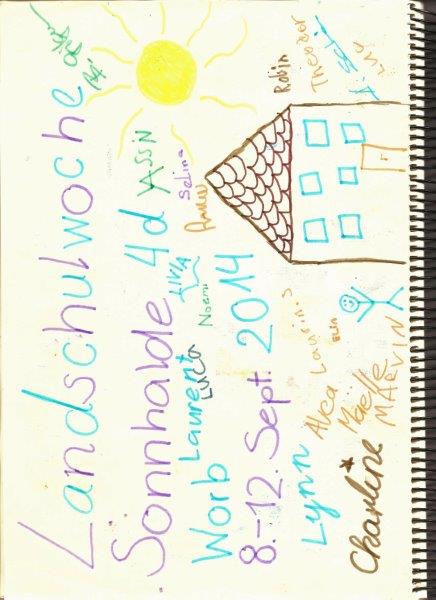 Landschulwoche
Sonnhalde 4d
Worb
8.-12. Sept. 2014
Yassin
Livia
Laurent
Luca
Noemi
Selina
Robin
Theodor
Laurin.s
Elin
Lynn
Alea
Maelle
MAErViN
Charline